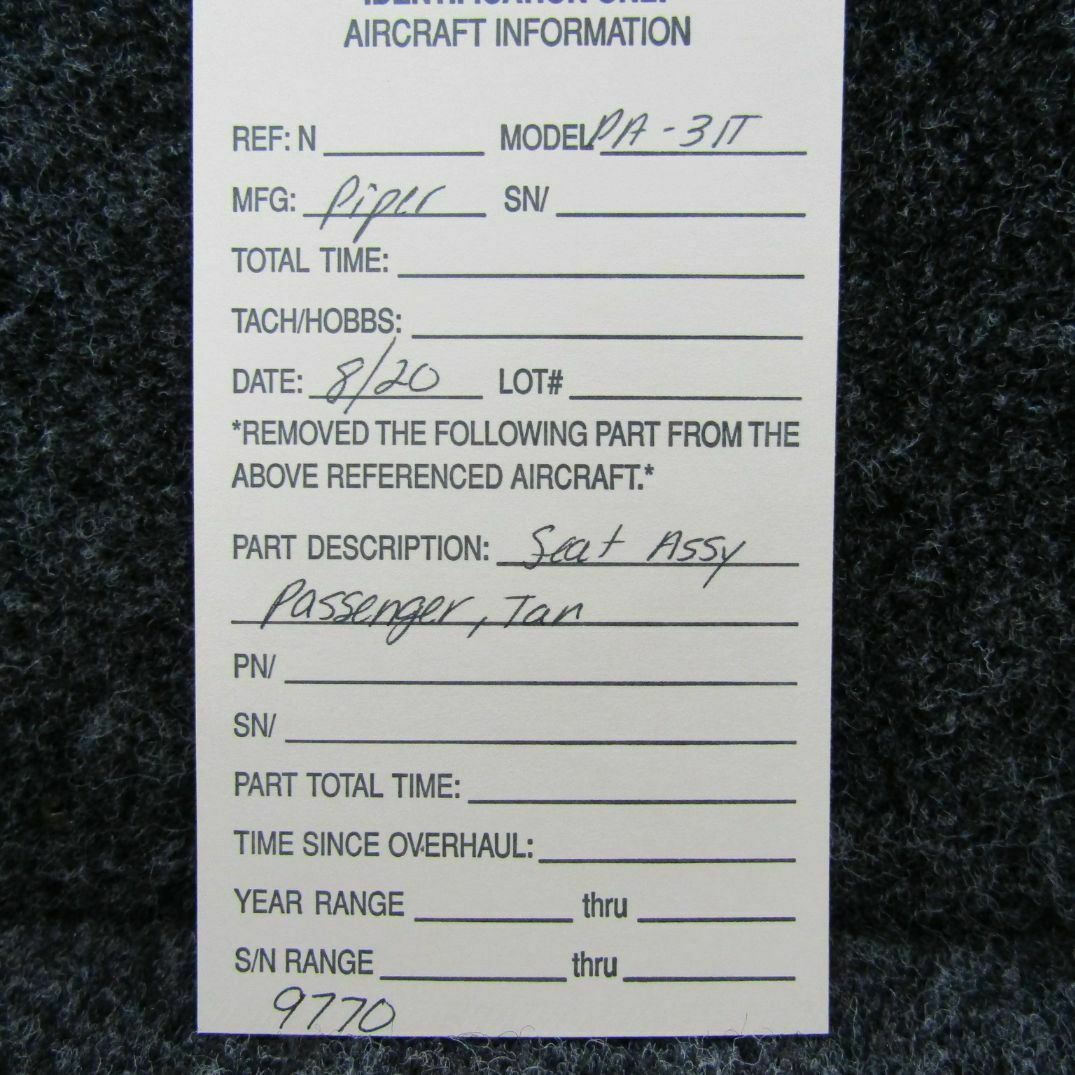 IDENTIFICATION ONLY
AIRCRAFT INFORMATION
REF: N MODEL PA-31T
MFG: Piper SN/
TOTAL TIME:
TACH/HOBBS:
DATE: 8/20 LOT#
*REMOVED THE FOLLOWING PART FROM THE
ABOVE REFERENCED AIRCRAFT.*
PART DESCRIPTION: Seat Assy
Passenger, Tan
PN/
SN/
PART TOTAL TIME:
TIME SINCE OVERHAUL:
YEAR RANGE thru
S/N RANGE thru
9770